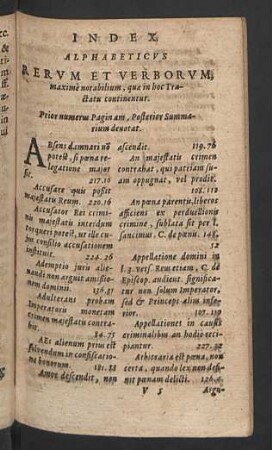 INDEX
ALPHABETICVS
RERVM ET VERBORVM,
maximè notabilium, quæ in hoc Tra-
ctatu continentur.
Prior numerus Paginam, Posterior Summa-
rium denotat.
ABsens damnari nō
potest, si pœna re-
legatione major
sit. 217.10
Accusare quis possit
majestatis Reum. 220.16
Accusator Rei crimi-
nis majestatis interdum
torqueri potest, ut ille cu-
jus consilio accusationem
instituit. 224.26
Ademptio juris alie-
nandi non arguit amissio-
nem dominii. 136.37
Adulterans probam
Imperatoris monetam
crimen majestatis contra-
hit. 84.73
AEs alienum prius est
solvendum in confiscatio-
ne bonorum. 191.88
Amor descendit, non
ascendit. 119.76
An majestatis crimen
contrahat, qui patriam su-
am oppugnat, vel prodit.
102.112
An pœna parentis, liberos
afficiens ex perduellionis
crimine, sublata sit per l.
sancimus. C. de pœnis. 145.
52
Appellatione domini in
C. de
Episcop. audient. significa-
tur non solum Imperator,
sed & Princeps alius infe-
rior. 107.119
Appellationes in causis
criminalibus an hodie reci-
piantur. 227.32
Arbitraria est pœna, non
certa, quando lex non defi-
nit pœnam delicti. 126.
V 5 Argu-